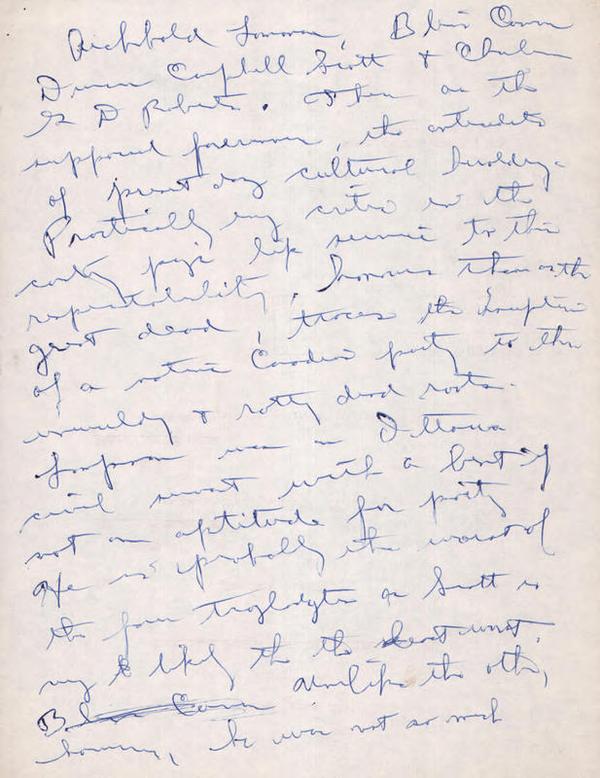 Archibald Lampman, Bliss Carman
Duncan Campbell Scott & Charles
G D Roberts. These are the
supposed forerunners, the antecedents
of present day cultural
Practically any critic in the
country pays lip service to their
respectability, honours them as the
great dead, traces the
of a native Canadian poetry to their
& rotty dead roots.
Lampman was an Ottawa
civil servant with a bent if
not an aptitude for poetry
He is probably the worst of
the four troglodytes as Scott is
likely the the least worst.
Bliss Carman Unlike the others,
however, he was not so much